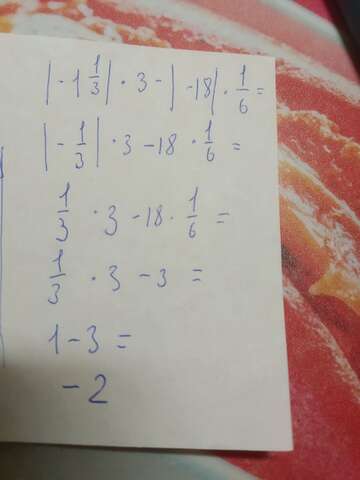 |-1 1/3| · 3 - |-18| · 1/6 =
|-1/3| · 3 - 18 · 1/6 =
1/3 · 3 - 18 · 1/6 =
1/3 · 3 - 3 =
1 - 3 =
-2